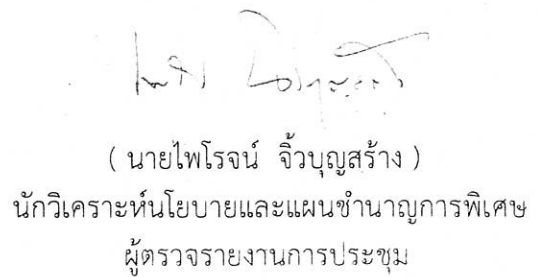 ( นายไพโรจน์ จิ้วบุญสร้าง )
นักวิเคราะห์นโยบายและแผนชำนาญการพิเศษ
ผู้ตรวจรายงานการประชุม